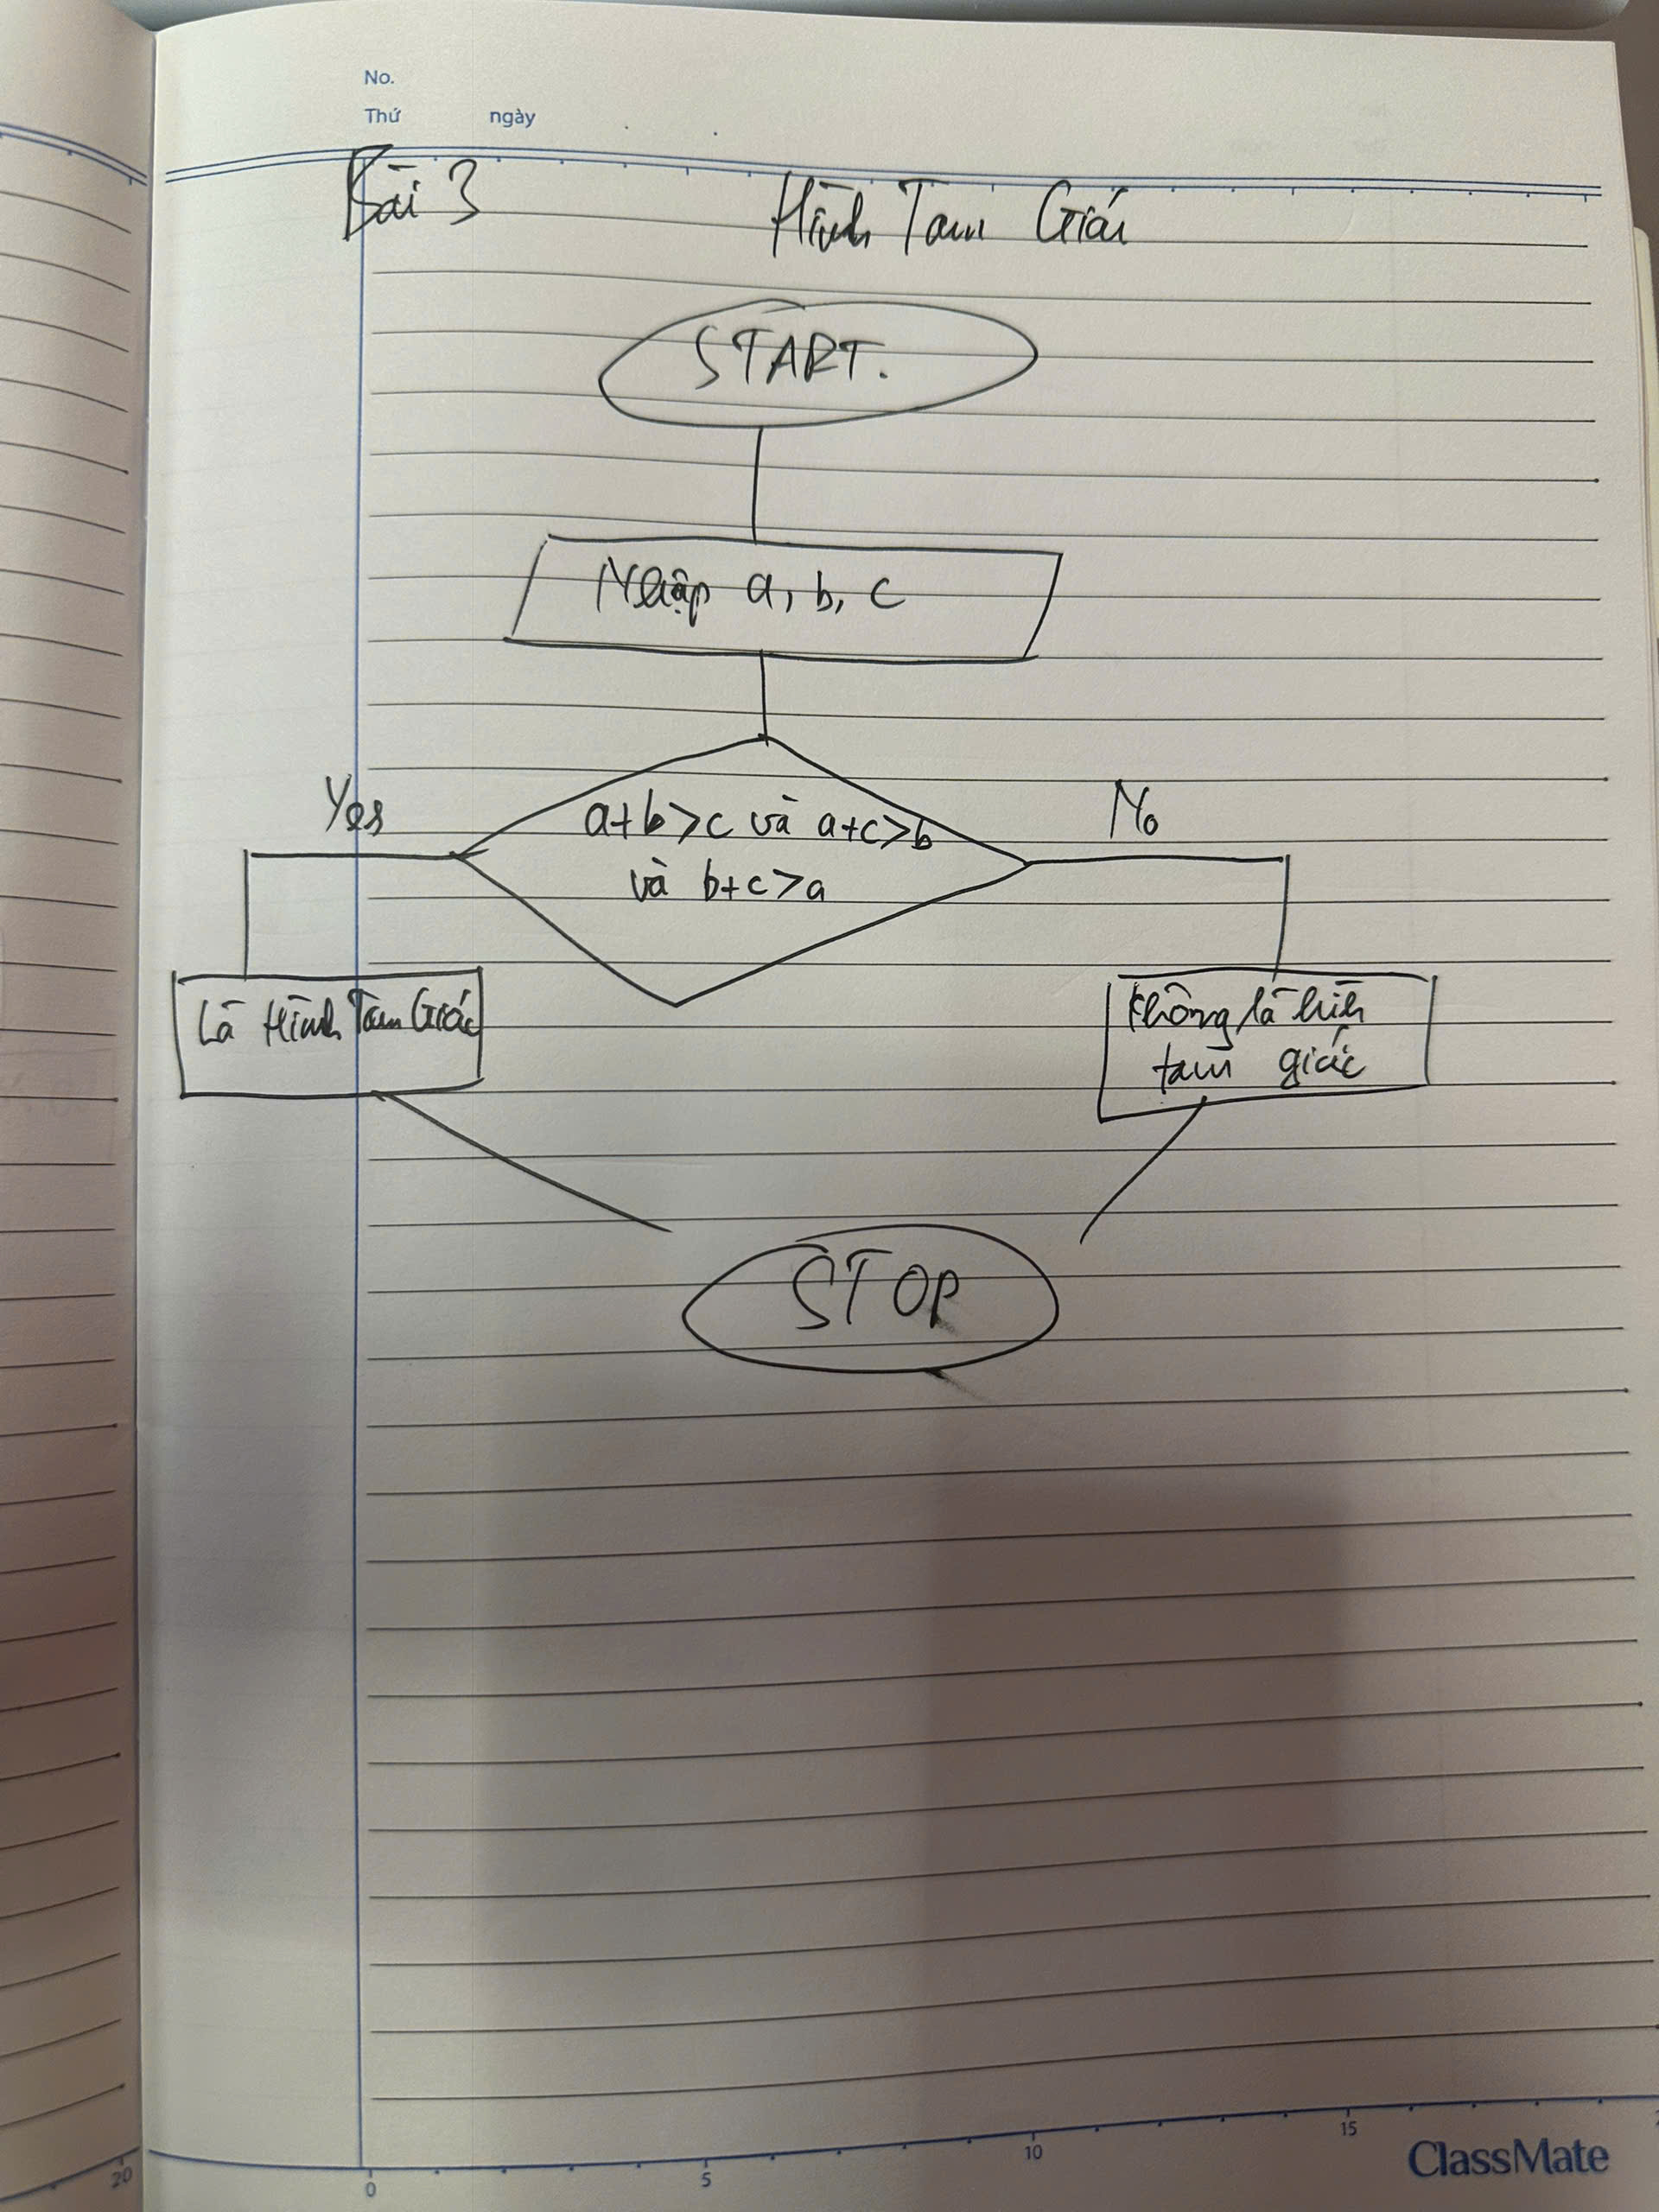 No.
Thứ ngày
Bài 3 Hình Tam Giác
START.
Nhập a, b, c
Yes
No
a+b>c và a+c>b
và b+c>a
Là Hình Tam Giác
Không là hình
tam giác
STOP
20
0 5 10 15
ClassMate